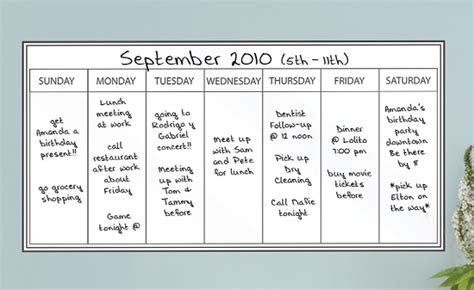 September 2010 (5th - 11th)
SUNDAY
MONDAY
TUESDAY
WEDNESDAY
THURSDAY
FRIDAY
SATURDAY
get
Amanda a
birthday
present!!
go grocery
shopping
Lunch
meeting
at work
call
restaurant
after work
about
Friday
Game
tonight @
going to
Rodrigo y
Gabriel
concert!!
Meeting
up with
Tom &
Tammy
before
Meet up
with Sam
and Pete
for lunch
Dentist
Follow-up
@ 12 noon
Pick up
Dry
Cleaning
Call
tonight
Dinner
@ Lolito
7:00 pm
buy movie
tickets
before
Amanda's
birthday
party
downtown
Be there
by 8
*pick up
Elton on
the way*